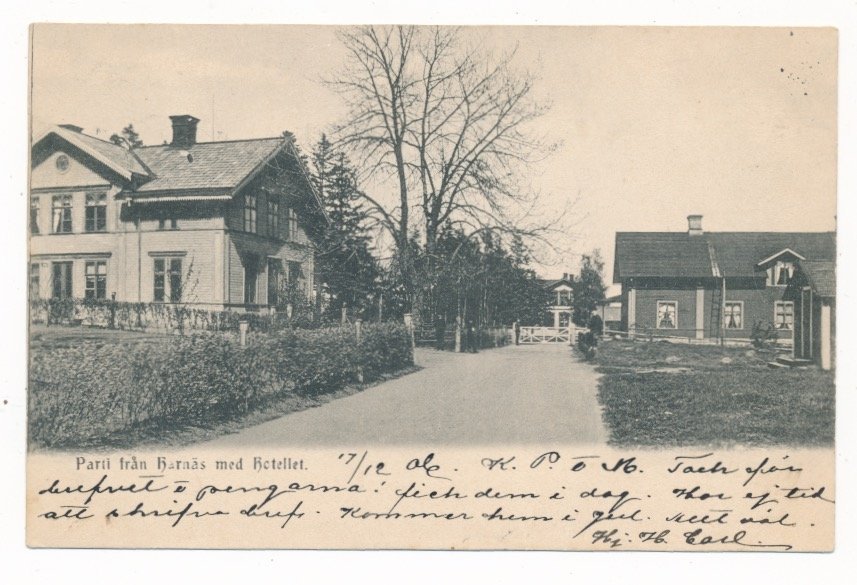 Parti från Harnäs med Hotellet.
17/12 06. K. P. o M. Tack för
brefvet o pengarna! fick dem i dag. Har ej tid
att skrifva bref. Kommer hem i jul. Allt väl.
Hj. H. Carl.